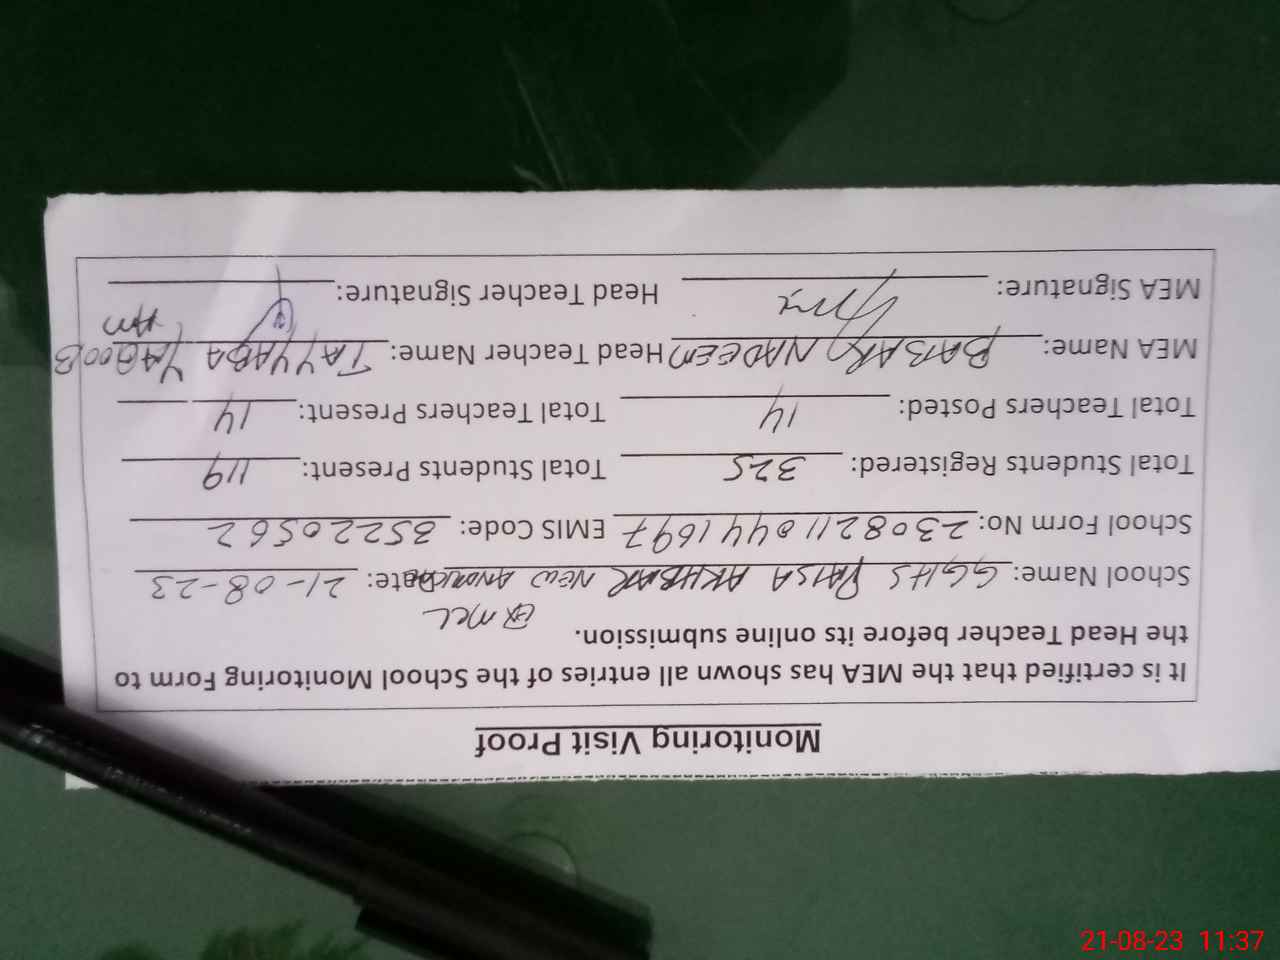 Monitoring Visit Proof
It is certified that the MEA has shown all entries of the School Monitoring Form to
the Head Teacher before its online submission.
Ex MCL
School Name: GGHS PAISA AKHBAR NEW Date: 21-08-23
School Form No: 23082110441697 EMIS Code: 35220562
Total Students Registered: 325 Total Students Present: 119
Total Teachers Posted: 14 Total Teachers Present: 14
MEA Name: BABAR NADEEM Head Teacher Name: TAYYABA YAQOOB
MEA Signature: Head Teacher Signature:
21-08-23 11:37